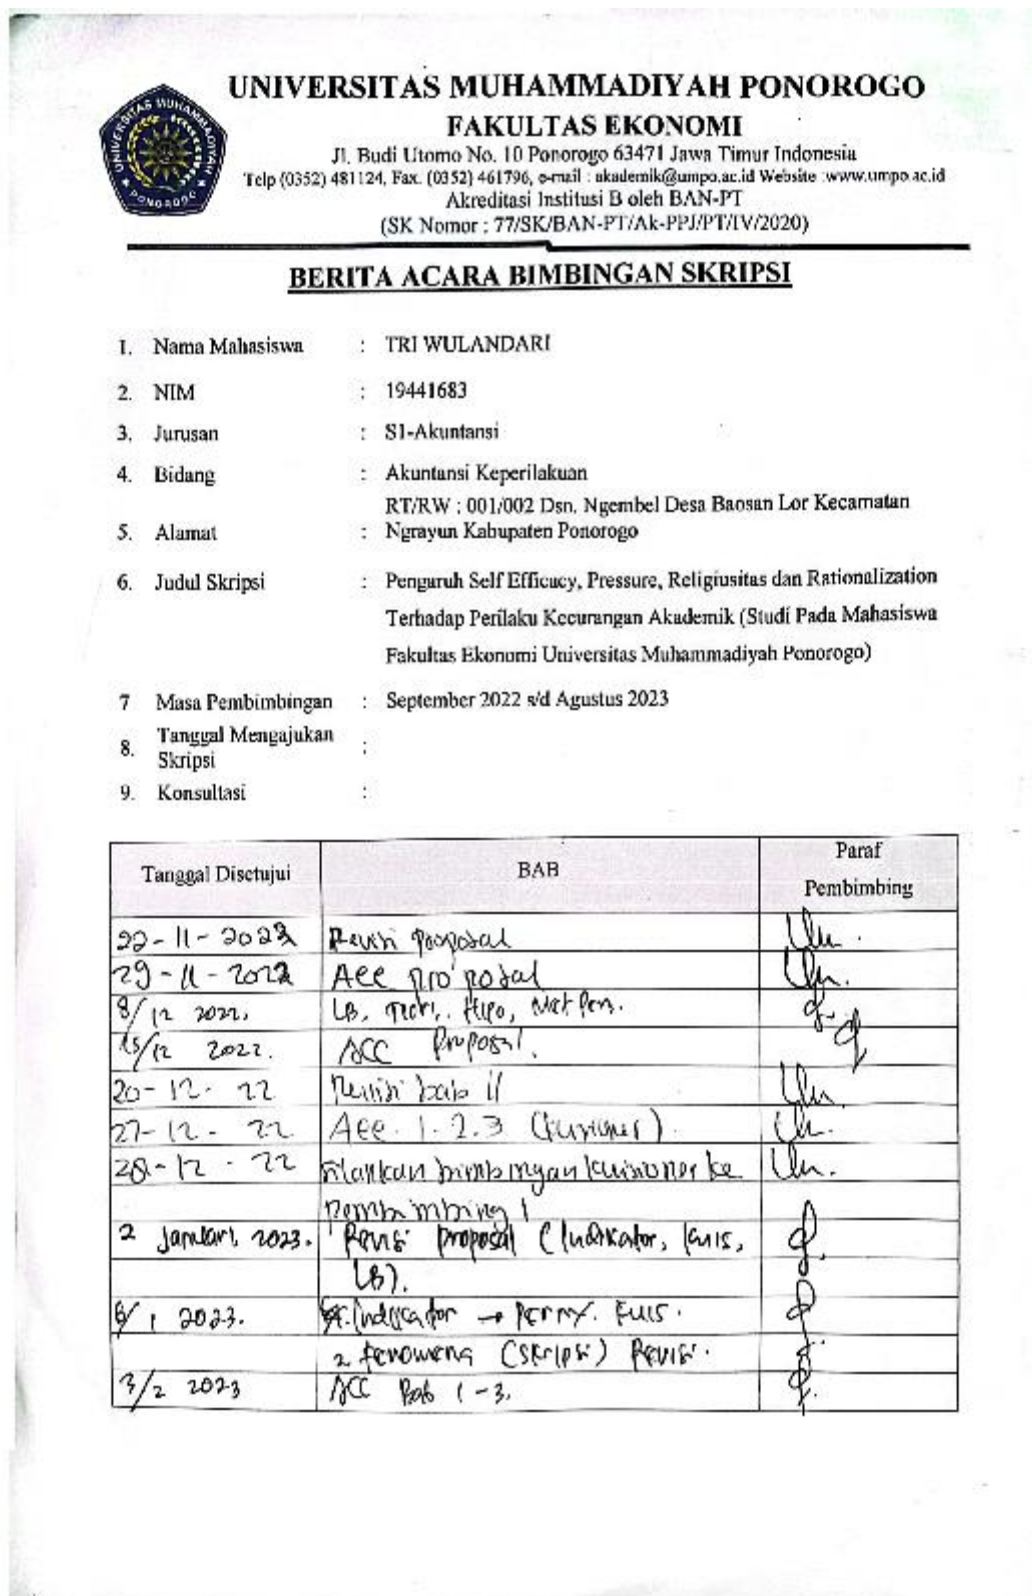 UNIVERSITAS MUHAMMADIYAH PONOROGO
FAKULTAS EKONOMI
Jl. Budi Utomo No. 10 Ponorogo 63471 Jawa Timur Indonesia
Telp (0352) 481124, Fax. (0352) 461796, e-mail : akademik@umpo.ac.id Website :www.umpo.ac.id
Akreditasi Institusi B oleh BAN-PT
(SK Nomor : 77/SK/BAN-PT/Ak-PPJ/PT/IV/2020)
UNIVERSITAS MUHAMMADIYAH
PONOROGO
BERITA ACARA BIMBINGAN SKRIPSI
1. Nama Mahasiswa : TRI WULANDARI
2. NIM : 19441683
3. Jurusan : S1-Akuntansi
4. Bidang : Akuntansi Keperilakuan
RT/RW : 001/002 Dsn. Ngembel Desa Baosan Lor Kecamatan
5. Alamat : Ngrayun Kabupaten Ponorogo
6. Judul Skripsi : Pengaruh Self Efficacy, Pressure, Religiusitas dan Rationalization
Terhadap Perilaku Kecurangan Akademik (Studi Pada Mahasiswa
Fakultas Ekonomi Universitas Muhammadiyah Ponorogo)
7 Masa Pembimbingan : September 2022 s/d Agustus 2023
8. Tanggal Mengajukan
Skripsi :
9. Konsultasi :
Tanggal Disetujui BAB Paraf
Pembimbing
22-11-2022 Revisi proposal
29-11-2022 Acc proposal
8/12 2022. LB, Teori, Hipo, Met Pen.
15/12 2022. ACC Proposal.
20-12-22 Revisi bab II
27-12-22 Acc. 1.2.3 (kuisioner).
28-12-22 silankan bimbingan kuisioner ke
Pembimbing 1
2 Januari, 2023. Revisi Proposal (Indikator, kuis,
LB).
6/1 2023. Indikator → Kuis.
2 fenomena (skripsi) Revisi.
3/2 2023 ACC Bab 1-3.